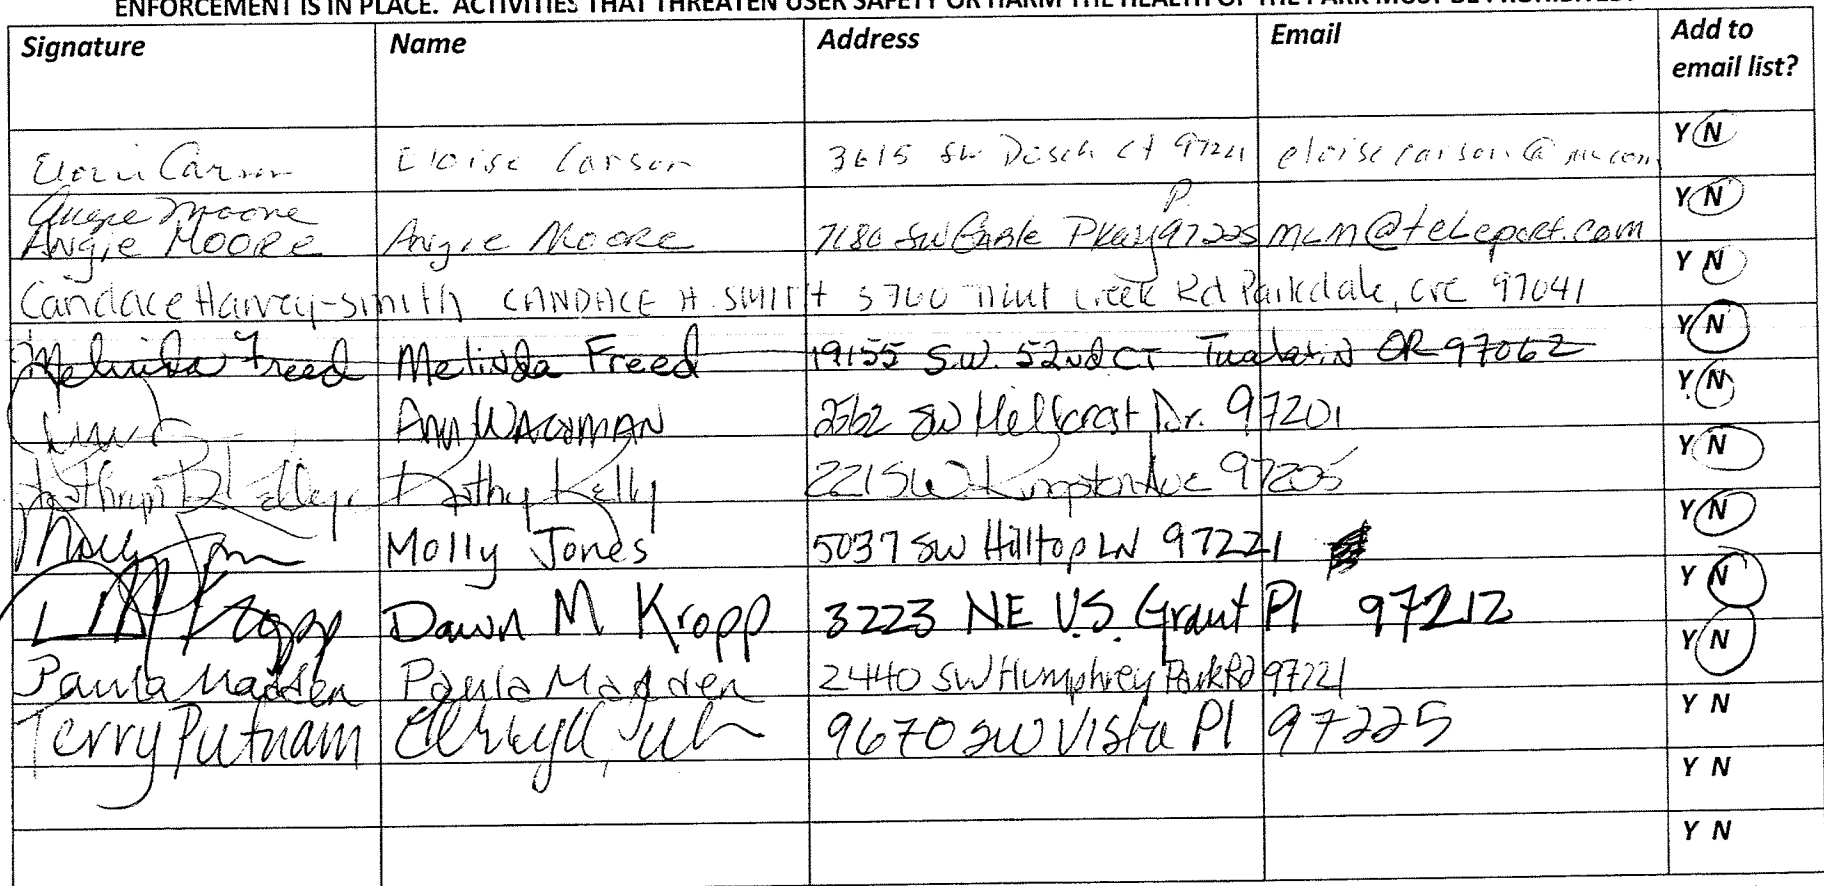 ENFORCEMENT IS IN PLACE. ACTIVITIES THAT THREATEN USER SAFETY OR HARM THE HEALTH OF THE PARK MUST BE PROHIBITED.
Signature Name Address Email Add to
email list?
Eloise Carson Eloise Carson 3615 SW Dosch Ct 97221 Y N
Angie Moore
Angie Moore Angie Moore 7180 SW Gable Pkwy 97225 mcm@teleport.com Y N
Candace Harvey-Smith CANDACE H. SMITH Creek Rd Parkdale, ore 97041 Y N
Melinda Freed Melinda Freed 19155 S.W. 52nd CT Tualatin OR 97062 Y N
Ann 2562 SW Dr. 97201 Y N
Kathryn Kelly Kathy Kelly 221 SW Kingston Ave 97205 Y N
Molly Jones Molly Jones 5037 SW Hilltop LN 97221 Y N
DM Kropp Dawn M Kropp 3223 NE U.S. Grant Pl 97212 Y N
Paula Madden Paula Madden 2440 SW Humphrey Park Rd 97221 Y N
Terry Putnam 9670 SW Vista Pl 97225 Y N
Y N
Y N